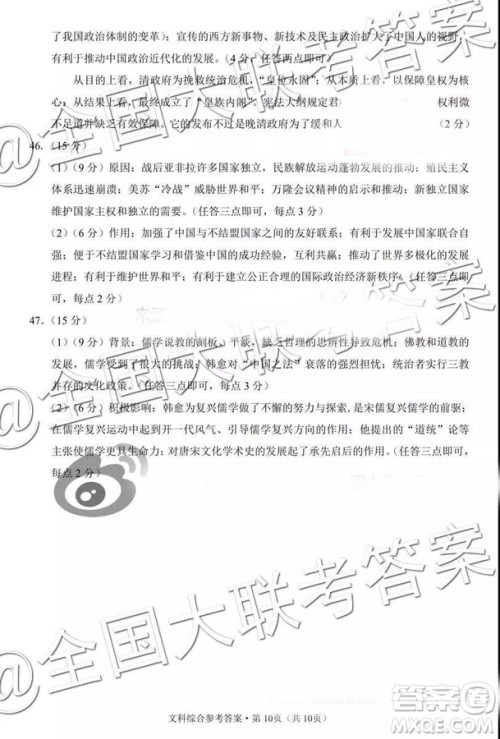 了我国政治体制的变革)；宣传的西方新事物、新技术及民主政治扩大了中国人的视野，
有利于推动中国政治近代化的发展。(4分)(任答两点即可)
从目的上看，清政府为挽救统治危机，“皇位永固”；从本质上看，以保障皇权为核
心；从结果上看，最终成立了“皇族内阁”，宪法大纲规定君 权利微
不足道并缺乏有效保障。它的发布不过是晚清政府为了缓和人 (2分)
46.(15分)
(1)(9分)原因：战后亚非拉许多国家独立，民族解放运动蓬勃发展的推动；殖民主义
体系迅速崩溃；美苏“冷战”威胁世界和平；万隆会议精神的启示和推动；新独立国家
维护国家主权和独立的需要。(任答三点即可，每点3分)
(2)(6分)作用：加强了中国与不结盟国家之间的友好关系；有利于中国外交自信；有
利于不结盟国家学习和借鉴中国的成功经验，工业起步；推动了世界多极化的发展进
程；有利于维护世界和平；有利于建立公正合理的国际政治经济新秩序。(任答三点即
可，每点2分)
47.(15分)
(1)(9分)背景：儒学说教的刻板、平庸，缺乏哲理的思辨性导致危机；佛教和道教的
发展，儒学受到了很大的挑战；韩愈对“中国之法”衰落的强烈担忧；统治者实行三教
并存的文化政策。(任答三点即可，每点3分)
(2)(6分)积极影响：韩愈为复兴儒学做了不懈的努力与探索，是宋儒复兴儒学的前驱；
在儒学复兴运动中起到了开一代风气、引导儒学复兴方向的重大作用；他提出的“道统”论等
主张使儒学更具生命力；对唐宋文化学术史的发展起了承先启后的作用。(任答三点即可，
每点2分)
文科综合参考答案·第10页（共10页）
@全国大联考答案
@全国大联考答案
答案圈
MXQE.COM